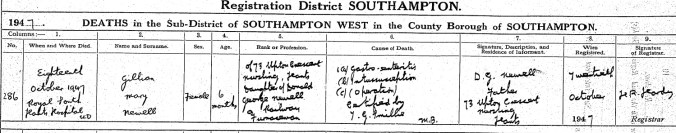 Registration District SOUTHAMPTON.
1947. DEATHS in the Sub-District of SOUTHAMPTON WEST in the County Borough of SOUTHAMPTON.
Columns:— 1. 2. 3. 4. 5. 6. 7. 8. 9.
No. When and Where Died. Name and Surname. Sex. Age. Rank or Profession. Cause of Death. Signature, Description, and Residence of Informant. When Registered. Signature of Registrar.
286
Eighteenth
October 1947
Royal South
Hants Hospital
UD
Gillian
Mary
Newell
Female
6 months
of 73 Upton Crescent
Nursling, Hants
Daughter of Donald
George Newell
a Railway
Fireman
(a) Gastro-enteritis
(b) Intussusception
(c) (Operation)
Certified by
M.B.
D.G. Newell
Father
73 Upton Crescent
Nursling
Hants
Twentieth
October
1947
Registrar